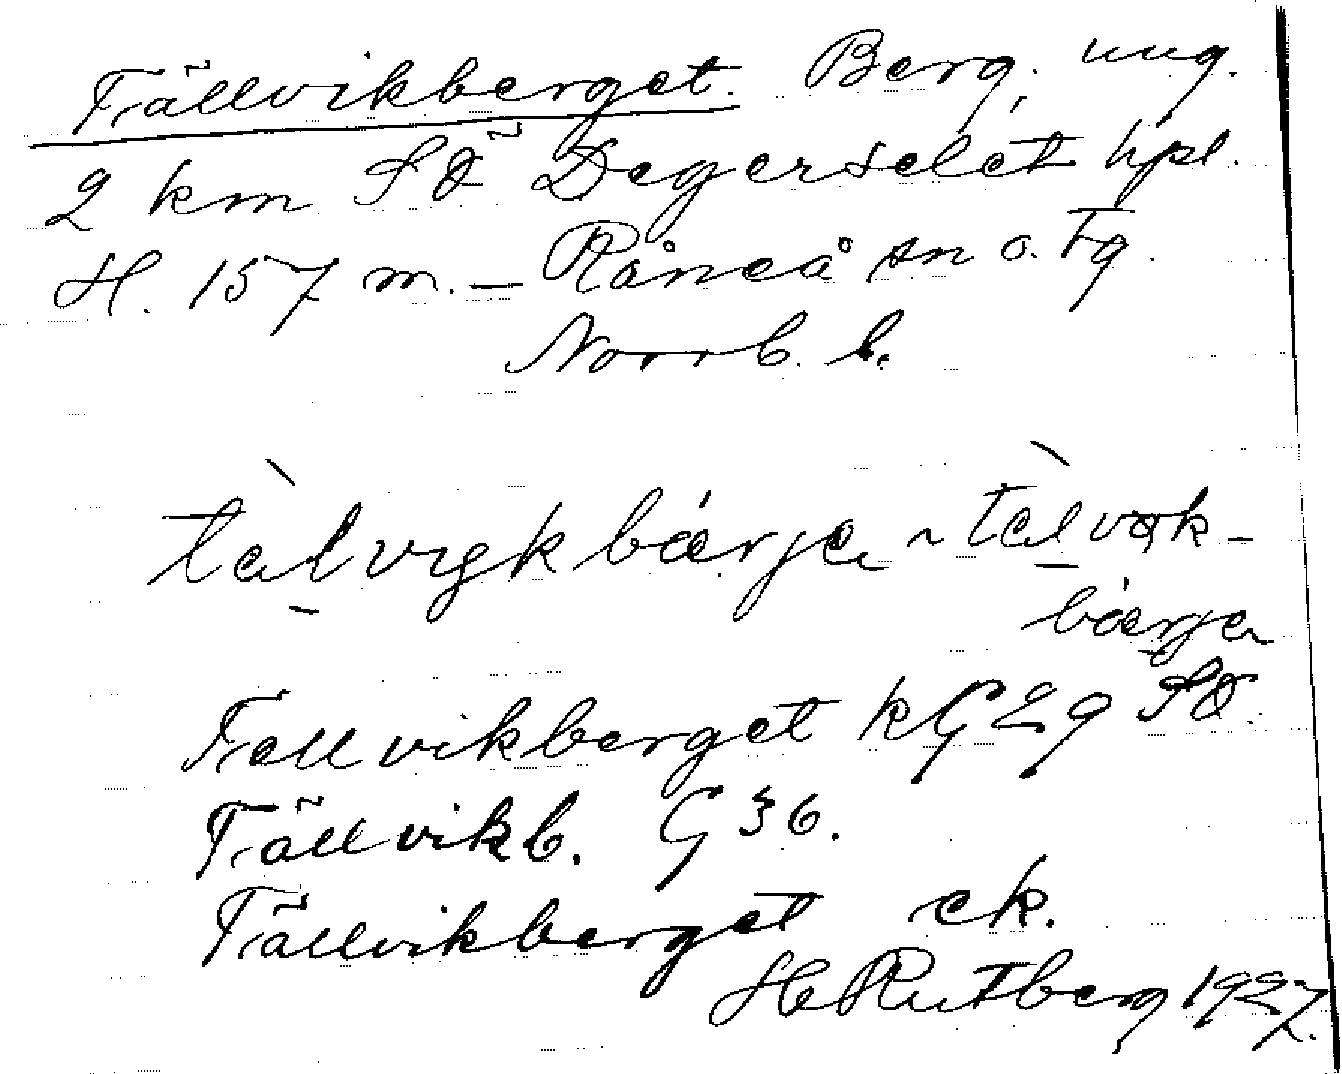 Tällvikberget. Berg, ung.
2 km SÖ Degerselet hpl.
H. 157 m. – Råneå sn o. Tg.
Norrb. l.
tælvɪkbærjə ~ tælvək-
bærjə
Tellvikberget kG 29 SÖ.
Tällvikb. G 36.
Tällvikberget ek.
H Rutberg 1927.